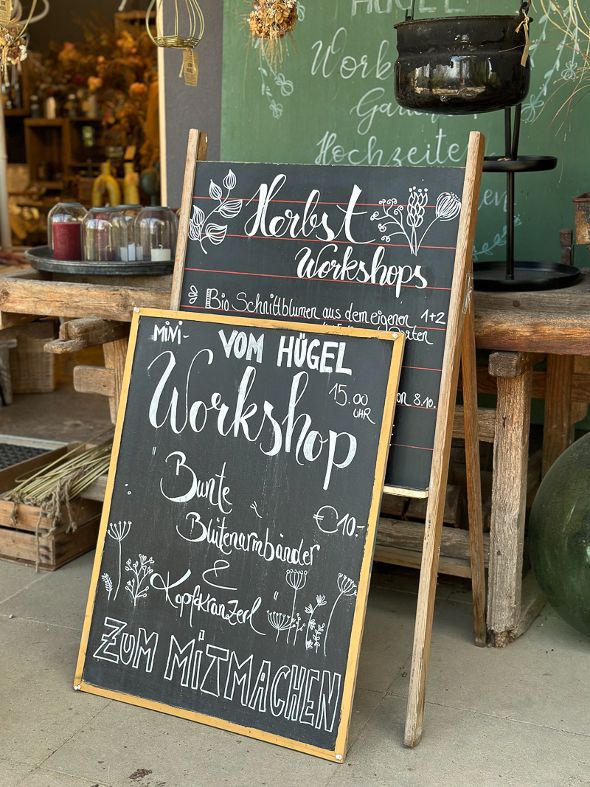 HÜGEL
Hochzeite
Herbst
Workshops
Bio Schnittblumen aus dem eigenen 1+2
8.10.
MiNi-
VOM HÜGEL
Workshop
15.00
UHR
"Bunte
€10.-
Blütenarmbänder
&
Kopfkranzerl"
ZUM MiTMACHEN